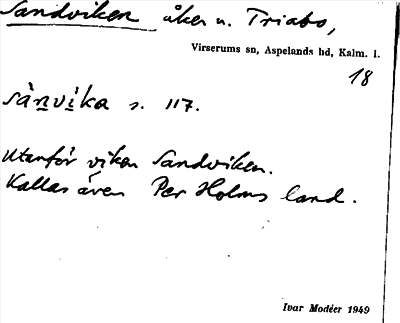 Sandviken åker u. Triabo,
Virserums sn, Aspelands hd, Kalm. l.
18
sànvíka s. 117.
Utanför viken Sandviken.
Kallas även Per Holms land.
Ivar Modéer 1949